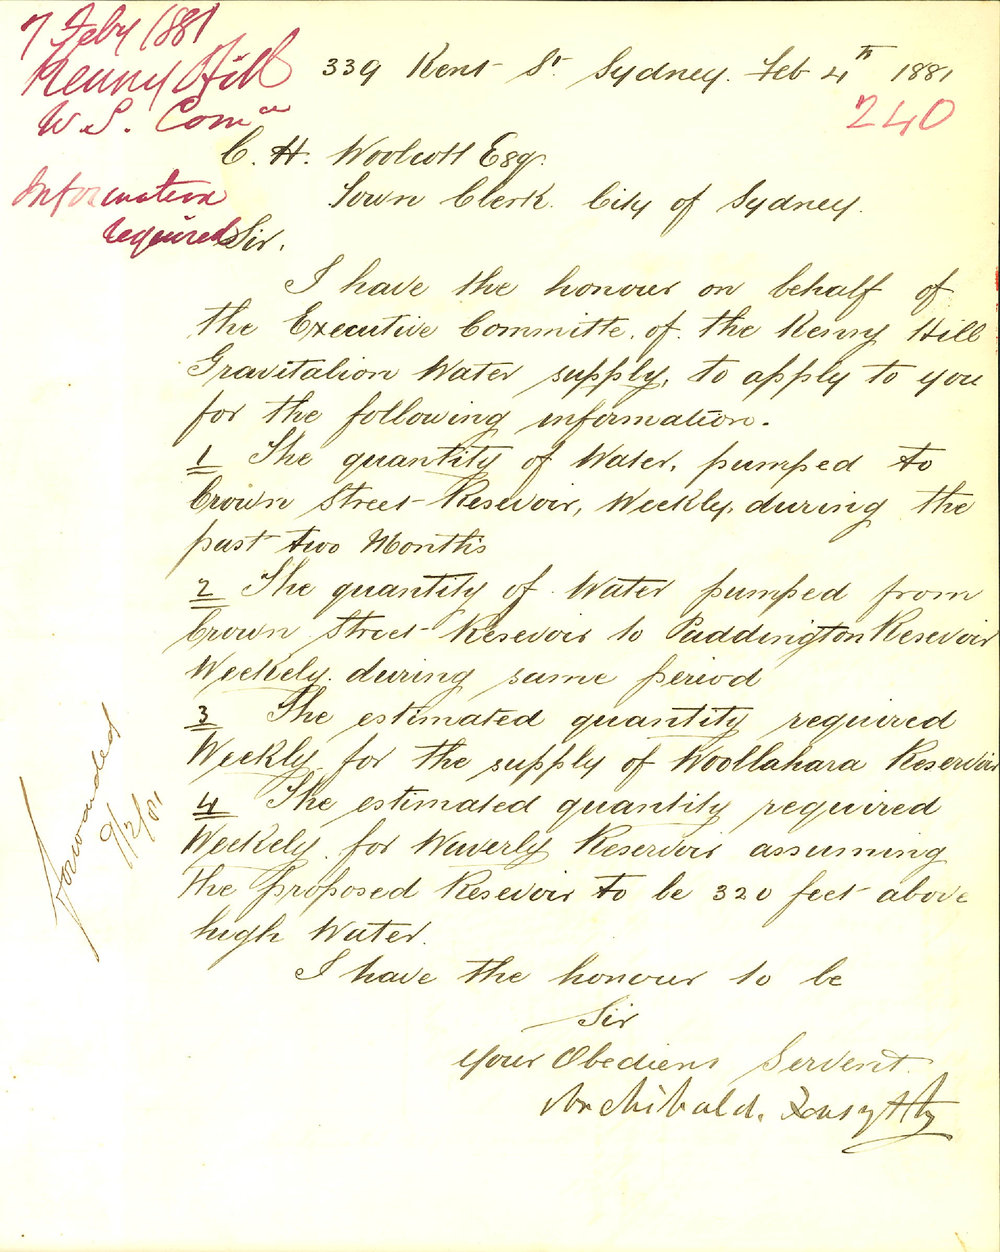 7 Feby 1881
Kenny Hill
W. S. Comee
Information
required
339 Kent St Sydney. Feb 4th 1881
240
C. H. Woolcott Esq.
Town Clerk. City of Sydney.
Sir.
I have the honour on behalf of
the Executive Committe. of. the Kenny Hill
Gravitation Water supply, to apply to you
for the following information.
1 The quantity of Water, pumped to
Crown Street Resevoir, Weekly, during the
past two Months
2 The quantity of Water pumped from
Crown Street Resevoir to Paddington Resevoir
Weekely. during same period
3 The estimated quantity required
Weekly for the supply of Woollahara Reservoir
4 The estimated quantity required
Weekely. for Waverly Reservoir assuming
the proposed Resevoir to be 320 feet above
high Water.
I have the honour to be
Sir
Your Obedient Servent.
Archibald. Forsyth
forwarded
9/2/81